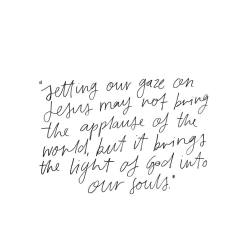 "Setting our gaze on
Jesus may not bring
the applause of the
world, but it brings
the light of God into
our souls."